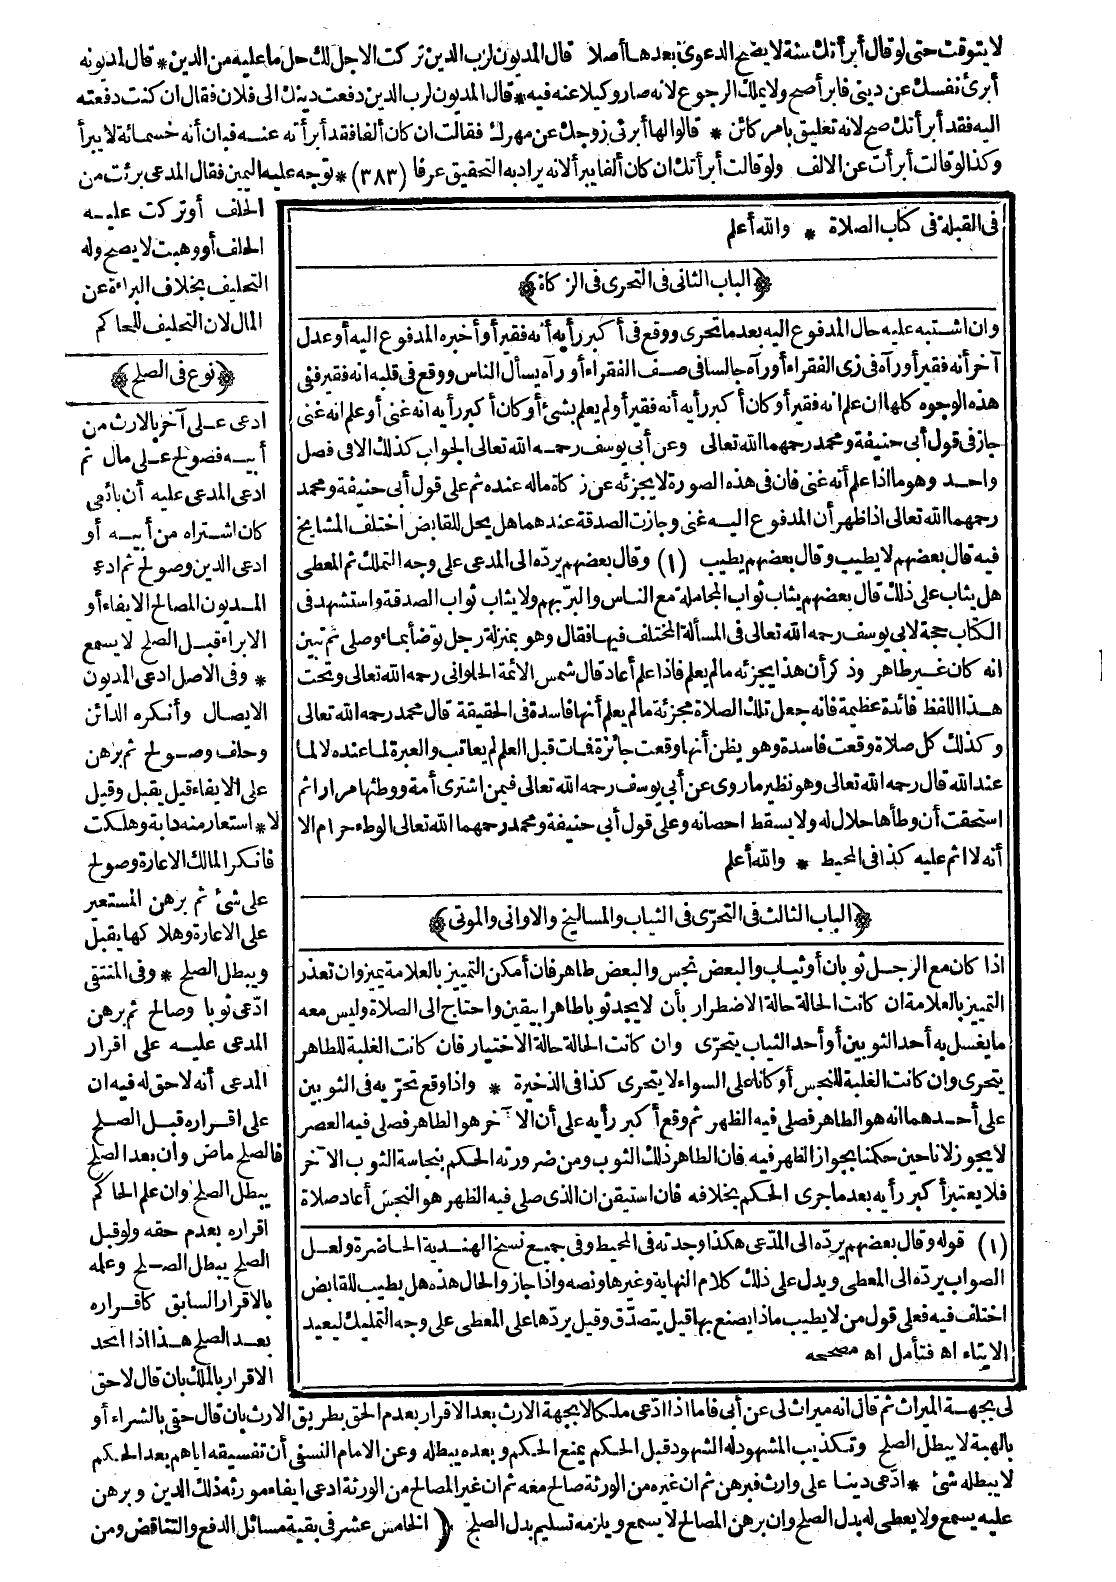 لا يتوقت حتى لو قال أبرأتك سنة لا يصح الدعوى بعدها أصلا قال المديون لرب الدين تركت الاجل لك حل ما عليه من الدين * قال لمديونه
أبرئ نفسك عن ديني فابرأ صح ولا يملك الرجوع لانه صار وكيلا عنه فيه * قال المديون لرب الدين دفعت دينك الى فلان فقال ان كنت دفعته
اليه فقد أبرأتك صح لانه تعليق بامر كائن * قالوا لها أبرئي زوجك عن مهرك فقالت ان كان ألفا فقد أبرأته عنه فبان أنه خمسمائة لا يبرأ
وكذا لو قالت أبرأت عن الالف ولو قالت أبرأتك ان كان ألفا يبرأ لانه يراد به التحقيق عرفا (٣٨٣) * توجه عليه اليمين فقال المدعى برئت من
الحلف أو تركت عليه
الحلف أو وهبت لا يصح وله
التحليف بخلاف البراءة عن
المال لان التحليف للحاكم
﴿نوع فى الصلح﴾
ادعى على آخر بالارث من
أبيه فصولح على مال ثم
ادعى المدعى عليه أن بائعى
كان اشتراه من أبيه أو
ادعى الدين وصولح ثم ادعى
المديون المصالح الايفاء أو
الابراء قبل الصلح لا يسمع
* وفى الاصل ادعى المديون
الايصال وأنكره الدائن
وحلف وصولح ثم برهن
على الايفاء قيل يقبل وقيل
لا * استعار منه دابة وهلكت
فانكر المالك الاعارة وصولح
على شئ ثم برهن المستعير
على الاعارة وهلاكها يقبل
ويبطل الصلح * وفى المنتقى
ادّعى ثوبا وصالح ثم برهن
المدعى عليه على اقرار
المدعى أنه لا حق له فيه ان
على اقراره قبل الصلح
فالصلح ماض وان بعد الصلح
يبطل الصلح وان علم الحاكم
اقراره بعدم حقه ولو قبل
الصلح يبطل الصلح وعلمه
بالاقرار السابق كاقراره
بعد الصلح هذا اذا اتحد
الاقرار بالملك بان قال لا حق
فى القبلة فى كتاب الصلاة * والله أعلم
﴿الباب الثانى فى التحرى فى الزكاة﴾
وان اشتبه عليه حال المدفوع اليه بعدما تحرى ووقع فى أكبر رأيه أنه فقير أو أخبره المدفوع اليه أو عدل
آخر أنه فقير أو رآه فى زى الفقراء أو رآه جالسا فى صف الفقراء أو رآه يسأل الناس ووقع فى قلبه انه فقير ففى
هذه الوجوه كلها ان علم انه فقير أو كان أكبر رأيه أنه فقير أو لم يعلم بشئ أو كان أكبر رأيه انه غنى أو علم انه غنى
جاز فى قول أبى حنيفة ومحمد رحمهما الله تعالى وعن أبى يوسف رحمه الله تعالى الجواب كذلك الا فى فصل
واحد وهو ما اذا علم أنه غنى فان فى هذه الصورة لا يجزئه عن زكاة ماله عنده ثم على قول أبى حنيفة ومحمد
رحمهما الله تعالى اذا ظهر أن المدفوع اليه غنى وجازت الصدقة عندهما هل يحل للقابض اختلف المشايخ
فيه قال بعضهم لا يطيب وقال بعضهم يطيب (١) وقال بعضهم يردّه الى المدعى على وجه التملك ثم المعطى
هل يثاب على ذلك قال بعضهم يثاب ثواب المجاملة مع الناس والبرّ بهم ولا يثاب ثواب الصدقة واستشهد فى
الكتاب حجة لابى يوسف رحمه الله تعالى فى المسألة المختلف فيها فقال وهو بمنزلة رجل توضأ بماء وصلى ثم تبين
انه كان غير طاهر وذكر أن هذا يجزئه ما لم يعلم فاذا علم أعاد قال شمس الائمة الحلوانى رحمه الله تعالى وتحت
هذا اللفظ فائدة عظيمة فانه جعل تلك الصلاة مجزئة ما لم يعلم أنها فاسدة فى الحقيقة قال محمد رحمه الله تعالى
وكذلك كل صلاة وقعت فاسدة وهو يظن أنها وقعت جائزة فمات قبل العلم لم يعاتب والعبرة لما عنده لا لما
عند الله قال رحمه الله تعالى وهو نظير ما روى عن أبى يوسف رحمه الله تعالى فيمن اشترى أمة ووطئها مرارا ثم
استحقت أن وطأها حلال له ولا يسقط احصانه وعلى قول أبى حنيفة ومحمد رحمهما الله تعالى الوطء حرام الا
أنه لا اثم عليه كذا فى المحيط * والله أعلم
﴿الباب الثالث فى التحرّى فى الثياب والمساليخ والاوانى والموتى﴾
اذا كان مع الرجل ثوبان أو ثياب والبعض نجس والبعض طاهر فان أمكن التمييز بالعلامة يميز وان تعذر
التمييز بالعلامة ان كانت الحالة حالة الاضطرار بأن لا يجد ثوبا طاهرا بيقين واحتاج الى الصلاة وليس معه
ما يغسل به أحد الثوبين أو أحد الثياب يتحرّى وان كانت الحالة حالة الاختيار فان كانت الغلبة للطاهر
يتحرى وان كانت الغلبة للنجس أو كانا على السواء لا يتحرى كذا فى الذخيرة * واذا وقع تحرّيه فى الثوبين
على أحدهما انه هو الطاهر فصلى فيه الظهر ثم وقع أكبر رأيه على أن الآخر هو الطاهر فصلى فيه العصر
لا يجوز لانا حين حكمنا بجواز الظهر فيه فان الطاهر ذلك الثوب ومن ضرورته الحكم بنجاسة الثوب الآخر
فلا يعتبر أكبر رأيه بعدما جرى الحكم بخلافه فان استيقن ان الذى صلى فيه الظهر هو النجس أعاد صلاة
(١) قوله وقال بعضهم يردّه الى المدّعى هكذا وجدته فى المحيط وفى جميع نسخ الهندية الحاضرة ولعل
الصواب يردّه الى المعطى ويدل على ذلك كلام النهاية وغيرها ونصه واذا جاز والحال هذه هل يطيب للقابض
اختلف فيه فعلى قول من لا يطيب ماذا يصنع بها قيل يتصدّق وقيل يردّها على المعطى على وجه التمليك ليعيد
الايتاء اه فتأمل اه مصححه
لى بجهة الميراث ثم قال انه ميراث لى عن أبى فاما اذا ادّعى ملكا لا بجهة الارث بعد الاقرار بعدم الحق بطريق الارث بان قال حقى بالشراء أو
بالهبة لا يبطل الصلح وتكذيب المشهود له الشهود قبل الحكم يمنع الحكم وبعده يبطله وعن الامام النسفى أن تفسيقه اياهم بعد الحكم
لا يبطله شئ * ادّعى دينا على وارث فبرهن ثم ان غيره من الورثة صالح معه ثم ان غير المصالح من الورثة ادعى ايفاء مورثه ذلك الدين وبرهن
عليه يسمع ولا يعطى له بدل الصلح وان برهن المصالح لا يسمع ويلزمه تسليم بدل الصلح ﴿ الخامس عشر فى بقية مسائل الدفع والتناقض ومن